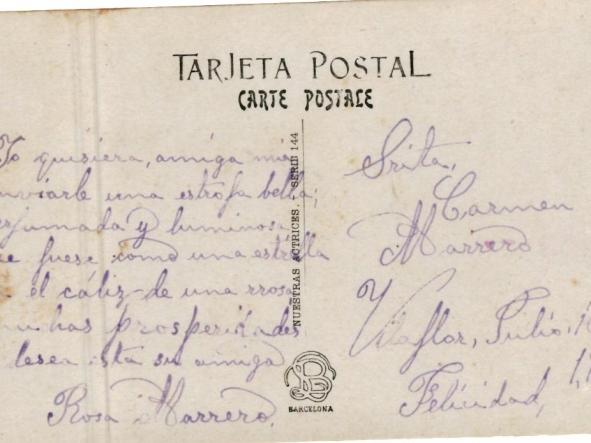 TARJETA POSTAL
CARTE POSTALE
Yo quisiera, amiga mia
nviarle una estrofa bella;
erfumada y luminosa
e fuese como una estrella
el cáliz de una rrosa
uchas prosperidades
desea esta su amiga
Rosa Marrero.
NUESTRAS ACTRICES. SERIE 144
BARCELONA
Srita,
Carmen
Marrero
Vilaflor, Julio,
Felicidad,